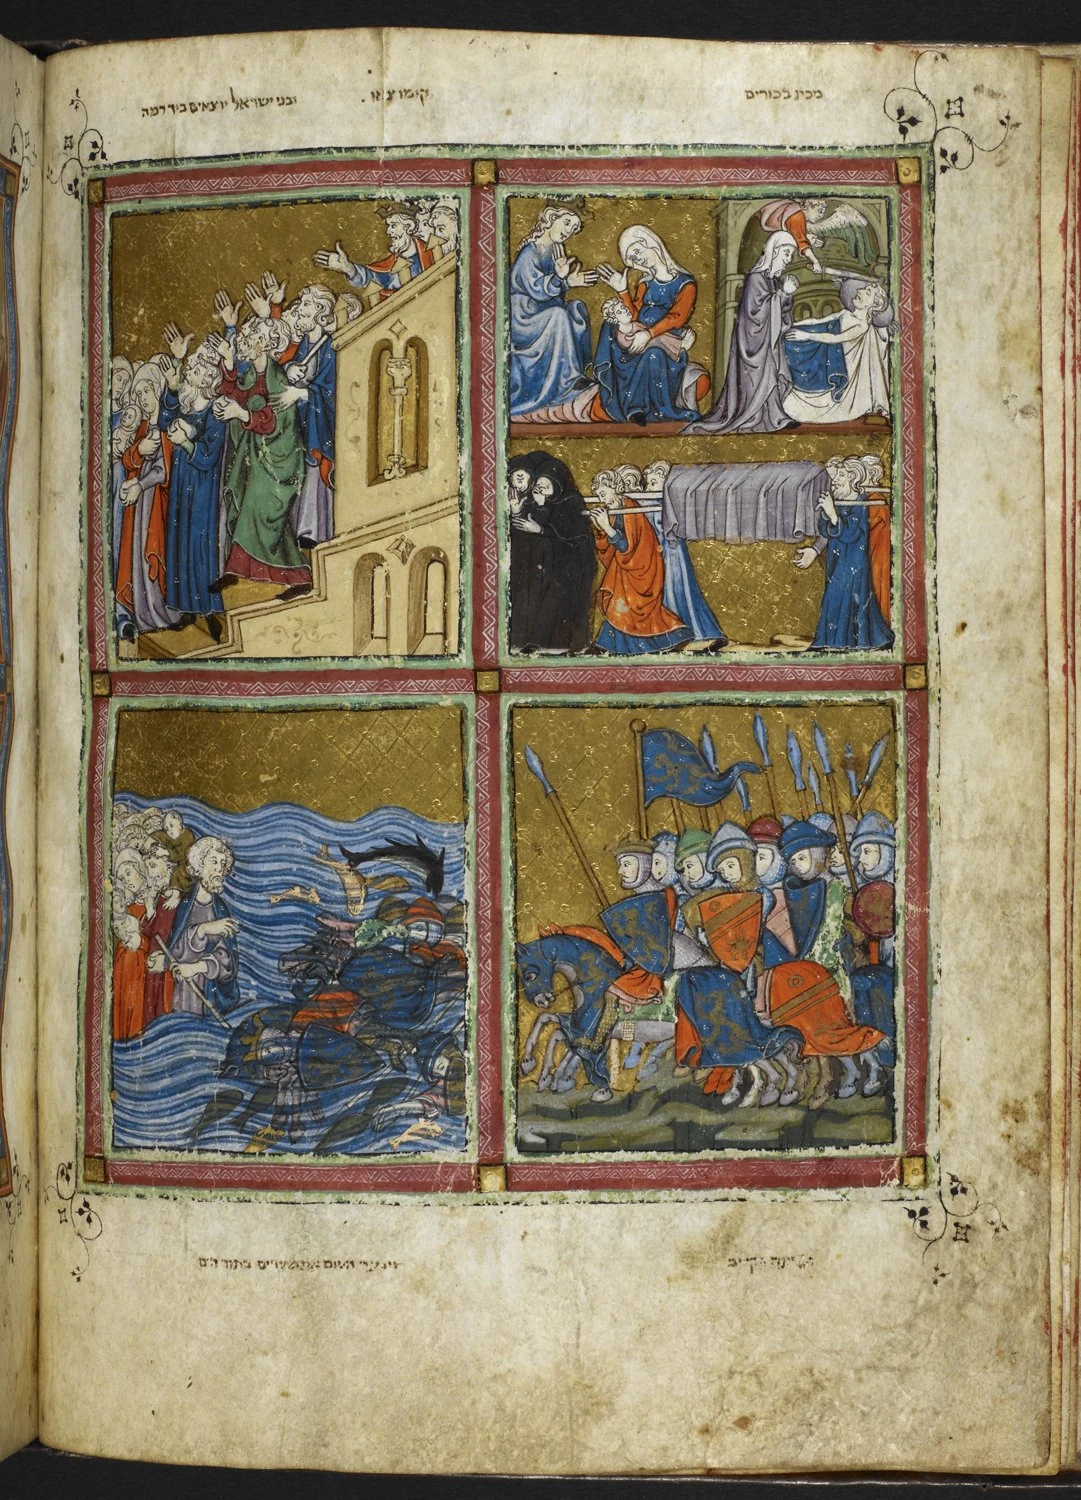 מכין בכורים
קומו צאו
ובני ישראל יוצאים ביד רמה
וינער השם את מצרים בתוך הים